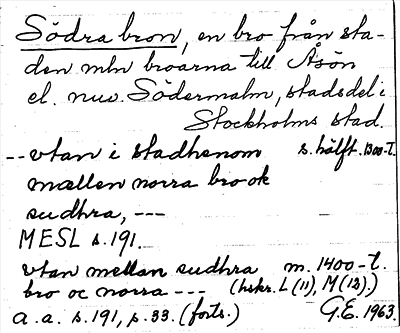 Södra bron, en bro från sta-
den mln broarna till Åsön
el. nuv. Södermalm, stadsdel i
Stockholms stad.
-- vtan i stadhenom s. hälft. 1300-t.
mællen norra bro ok
sudhra, ---
MESL s. 191.
vtan mellan sudhra m. 1400-t.
bro oc norra --- (hskr. L (11), M (12).)
a. a. s. 191, s. 33. (forts.) G.E. 1963.